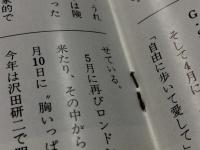 「自由に歩いて愛して」
そして4月に
うれ
は険
った
家的で
せている。
5月に再びロンド
来たり、その中から
月10日に〝胸いっぱ
今年は沢田研二で